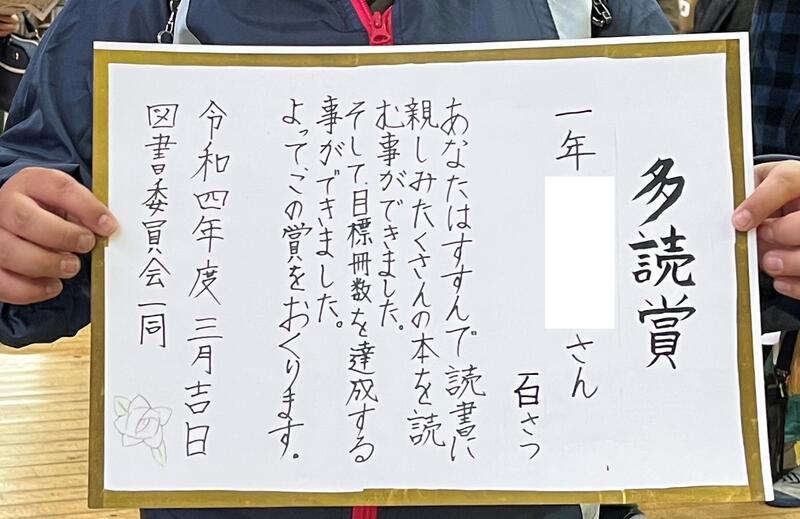 多読賞
一年
さん
百さつ
あなたはすすんで読書に
親しみたくさんの本を読
む事ができました。
そして目標冊数を達成する
事ができました。
よってこの賞をおくります。
令和四年度三月吉日
図書委員会一同